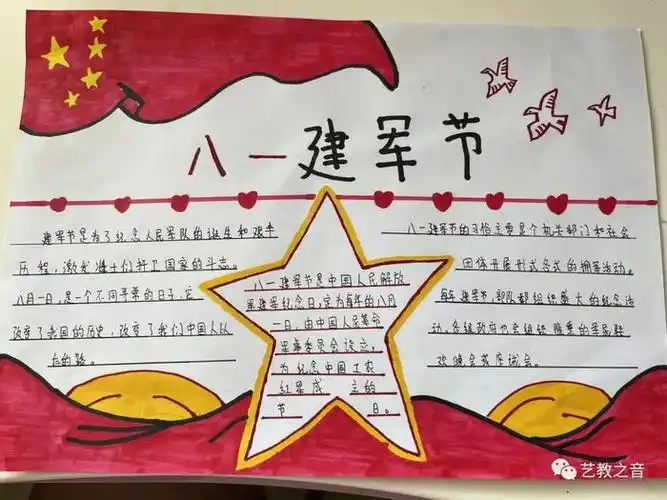 八一建军节
建军节是为了纪念人民军队的诞生和艰辛
历程，激发将士们捍卫国家的斗志。
八月一日，是一个不同寻常的日子，它
改变了我国的历史，改变了我们中国人以
后的路。
八一建军节是中国人民解放
军建军纪念日，定为每年的八月
一日，由中国人民革命
军事委员会设立，
为纪念中国工农
红军成立的
节日。
八一建军节的习俗主要是个机关部门和社会
团体开展形式各式的拥军活动。
每年建军节，部队都组织盛大的纪念活
动，各级政府也会组织隆重的军民联
欢晚会或座谈会。
艺教之音